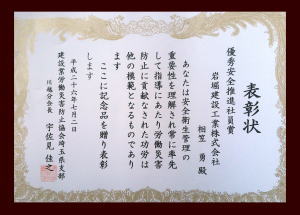 表彰状
優秀安全推進社員賞
岩堀建設工業株式会社
相笠 勇 殿
あなたは安全衛生管理の
重要性を理解され常に率先
して指導にあたり労働災害
防止に貢献なされた功労は
他の模範となるものであり
ます
ここに記念品を贈り表彰
します
平成二十六年七月二日
建設業労働災害防止協会埼玉県支部
川越分会長 宇佐見 佳之